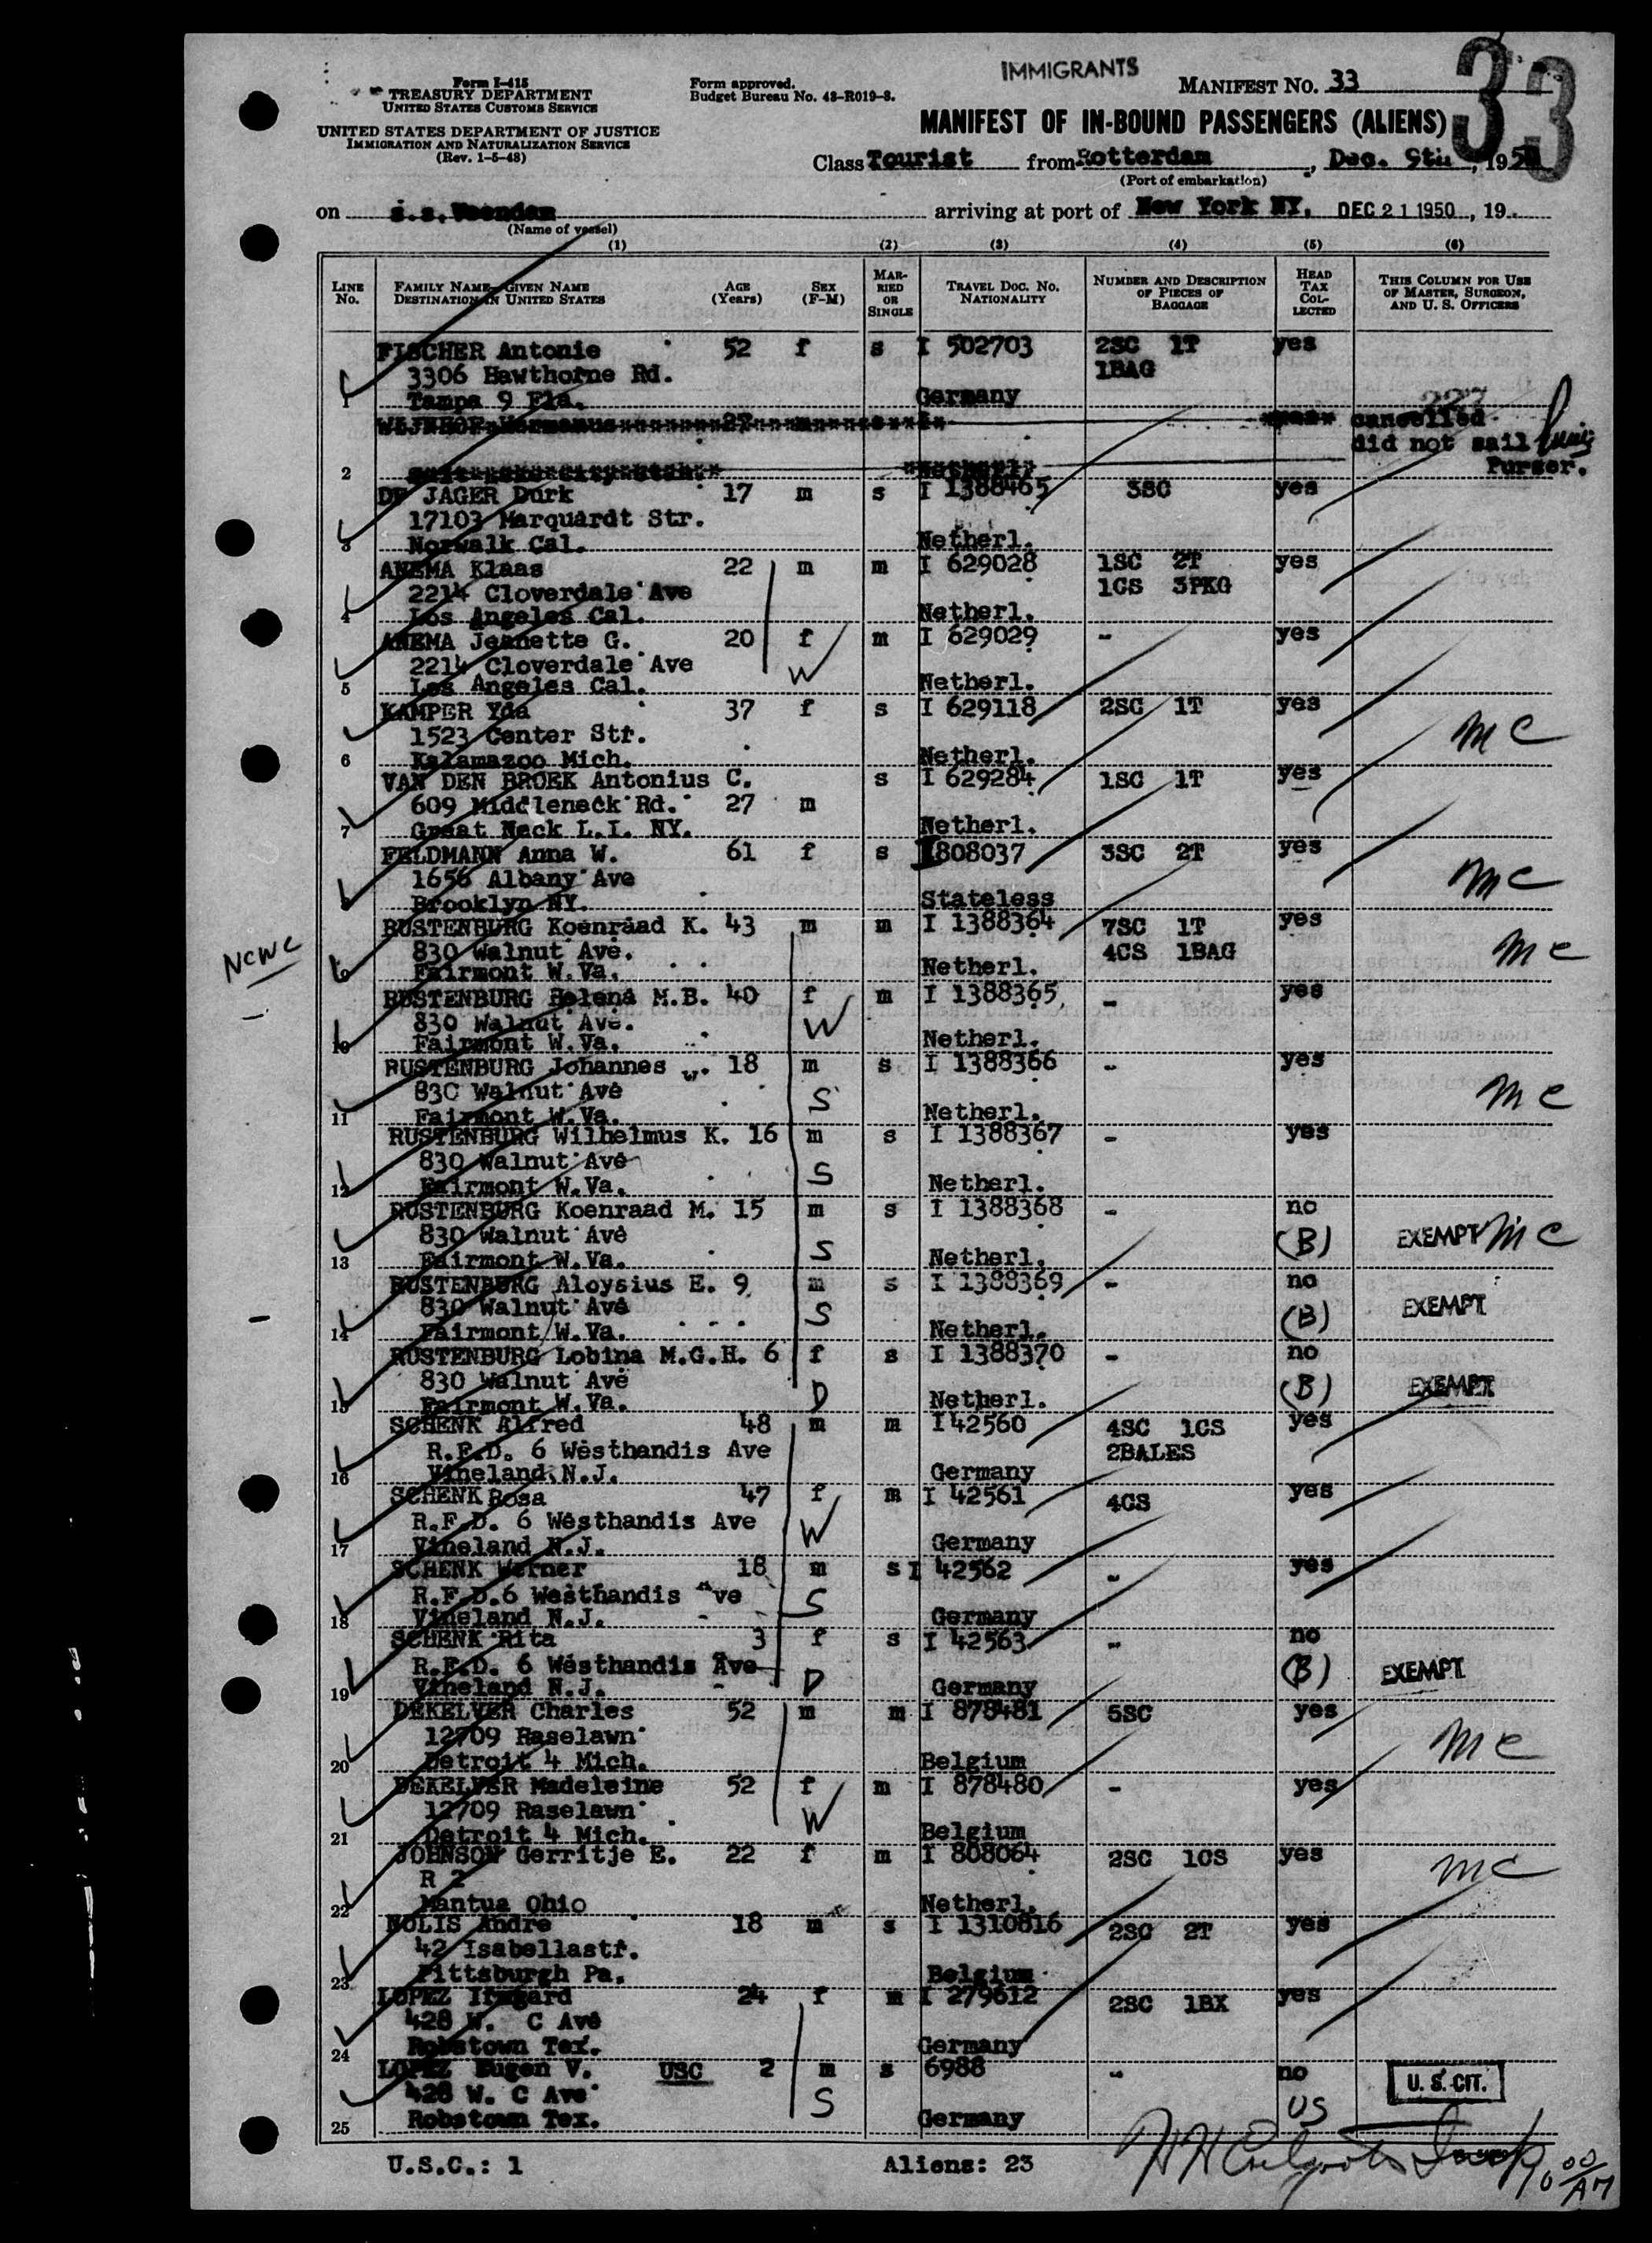 IMMIGRANTS
33
Form I-415
TREASURY DEPARTMENT
UNITED STATES CUSTOMS SERVICE
UNITED STATES DEPARTMENT OF JUSTICE
IMMIGRATION AND NATURALIZATION SERVICE
(Rev. 1-5-48)
Form approved.
Budget Bureau No. 43-R019-8.
MANIFEST NO. 33
MANIFEST OF IN-BOUND PASSENGERS (ALIENS)
Class Tourist from Rotterdam, Dec. 9th, 1950
(Port of embarkation)
on s.s. Veendam arriving at port of New York NY. DEC 21 1950, 19
(Name of vessel)
(1) (2) (3) (4) (5) (6)
LINE No.
FAMILY NAME—GIVEN NAME
DESTINATION IN UNITED STATES
AGE (Years)
SEX (F-M)
MARRIED OR SINGLE
TRAVEL DOC. NO.
NATIONALITY
NUMBER AND DESCRIPTION OF PIECES OF BAGGAGE
HEAD TAX COLLECTED
THIS COLUMN FOR USE OF MASTER, SURGEON, AND U. S. OFFICERS
FISCHER Antonie 52 f s I 502703 2SC 1T yes
3306 Hawthorne Rd. 1BAG
1 Tampa 9 Fla. Germany
227
cancelled
did not sail
2 Netherl. Purser.
DE JAGER Durk 17 m s I 1388465 3SC yes
17103 Marquardt Str.
3 Norwalk Cal. Netherl.
ANEMA Klaas 22 m m I 629028 1SC 2T yes
2214 Cloverdale Ave 1CS 3PKG
4 Los Angeles Cal. Netherl.
ANEMA Jeanette G. 20 f m I 629029 - yes
2214 Cloverdale Ave W
5 Los Angeles Cal. Netherl.
KAMPER Yda 37 f s I 629118 2SC 1T yes
1523 Center Str. mc
6 Kalamazoo Mich. Netherl.
VAN DEN BROEK Antonius C. s I 629284 1SC 1T yes
609 Middleneck Rd. 27 m
7 Great Neck L.I. NY. Netherl.
FELDMANN Anna W. 61 f s I 808037 3SC 2T yes
1656 Albany Ave mc
Brooklyn NY. Stateless
RUSTENBURG Koenraad K. 43 m m I 1388364 7SC 1T yes
NCWC 830 Walnut Ave. 4CS 1BAG mc
9 Fairmont W.Va. Netherl.
RUSTENBURG Helena M.B. 40 f m I 1388365 - yes
830 Walnut Ave. W
10 Fairmont W.Va. Netherl.
RUSTENBURG Johannes W. 18 m s I 1388366 - yes
830 Walnut Ave S mc
11 Fairmont W.Va. Netherl.
RUSTENBURG Wilhelmus K. 16 m s I 1388367 - yes
830 Walnut Ave S
12 Fairmont W.Va. Netherl.
RUSTENBURG Koenraad M. 15 m s I 1388368 - no
830 Walnut Ave S (B) EXEMPT mc
13 Fairmont W.Va. Netherl.
RUSTENBURG Aloysius E. 9 m s I 1388369 - no
830 Walnut Ave S (B) EXEMPT
14 Fairmont W.Va. Netherl.
RUSTENBURG Lobina M.G.H. 6 f s I 1388370 - no
830 Walnut Ave D (B) EXEMPT
15 Fairmont W.Va. Netherl.
SCHENK Alfred 48 m m I 42560 4SC 1CS yes
R.F.D. 6 Westhandis Ave 2BALES
16 Vineland N.J. Germany
SCHENK Rosa 47 f m I 42561 4CS yes
R.F.D. 6 Westhandis Ave W
17 Vineland N.J. Germany
SCHENK Werner 18 m s I 42562 - yes
R.F.D. 6 Westhandis Ave S
18 Vineland N.J. Germany
SCHENK Rita 3 f s I 42563 - no
R.F.D. 6 Westhandis Ave D (B) EXEMPT
19 Vineland N.J. Germany
DEKELVER Charles 52 m m I 878481 5SC yes
12709 Raselawn mc
20 Detroit 4 Mich. Belgium
DEKELVER Madeleine 52 f m I 878480 - yes
12709 Raselawn W
21 Detroit 4 Mich. Belgium
JOHNSON Gerritje E. 22 f m I 808064 2SC 1CS yes
R 2 mc
22 Mantua Ohio Netherl.
NOLIS Andre 18 m s I 1310816 2SC 2T yes
42 Isabellastr.
23 Pittsburgh Pa. Belgium
LOPEZ Irmgard 24 f m I 279612 2SC 1BX yes
428 W. C Ave
24 Robstown Tex. Germany
LOPEZ Eugen V. USC 2 m s 6988 - no U. S. CIT.
428 W. C Ave S US
25 Robstown Tex. Germany
U.S.C.: 1 Aliens: 23
10 00/AM